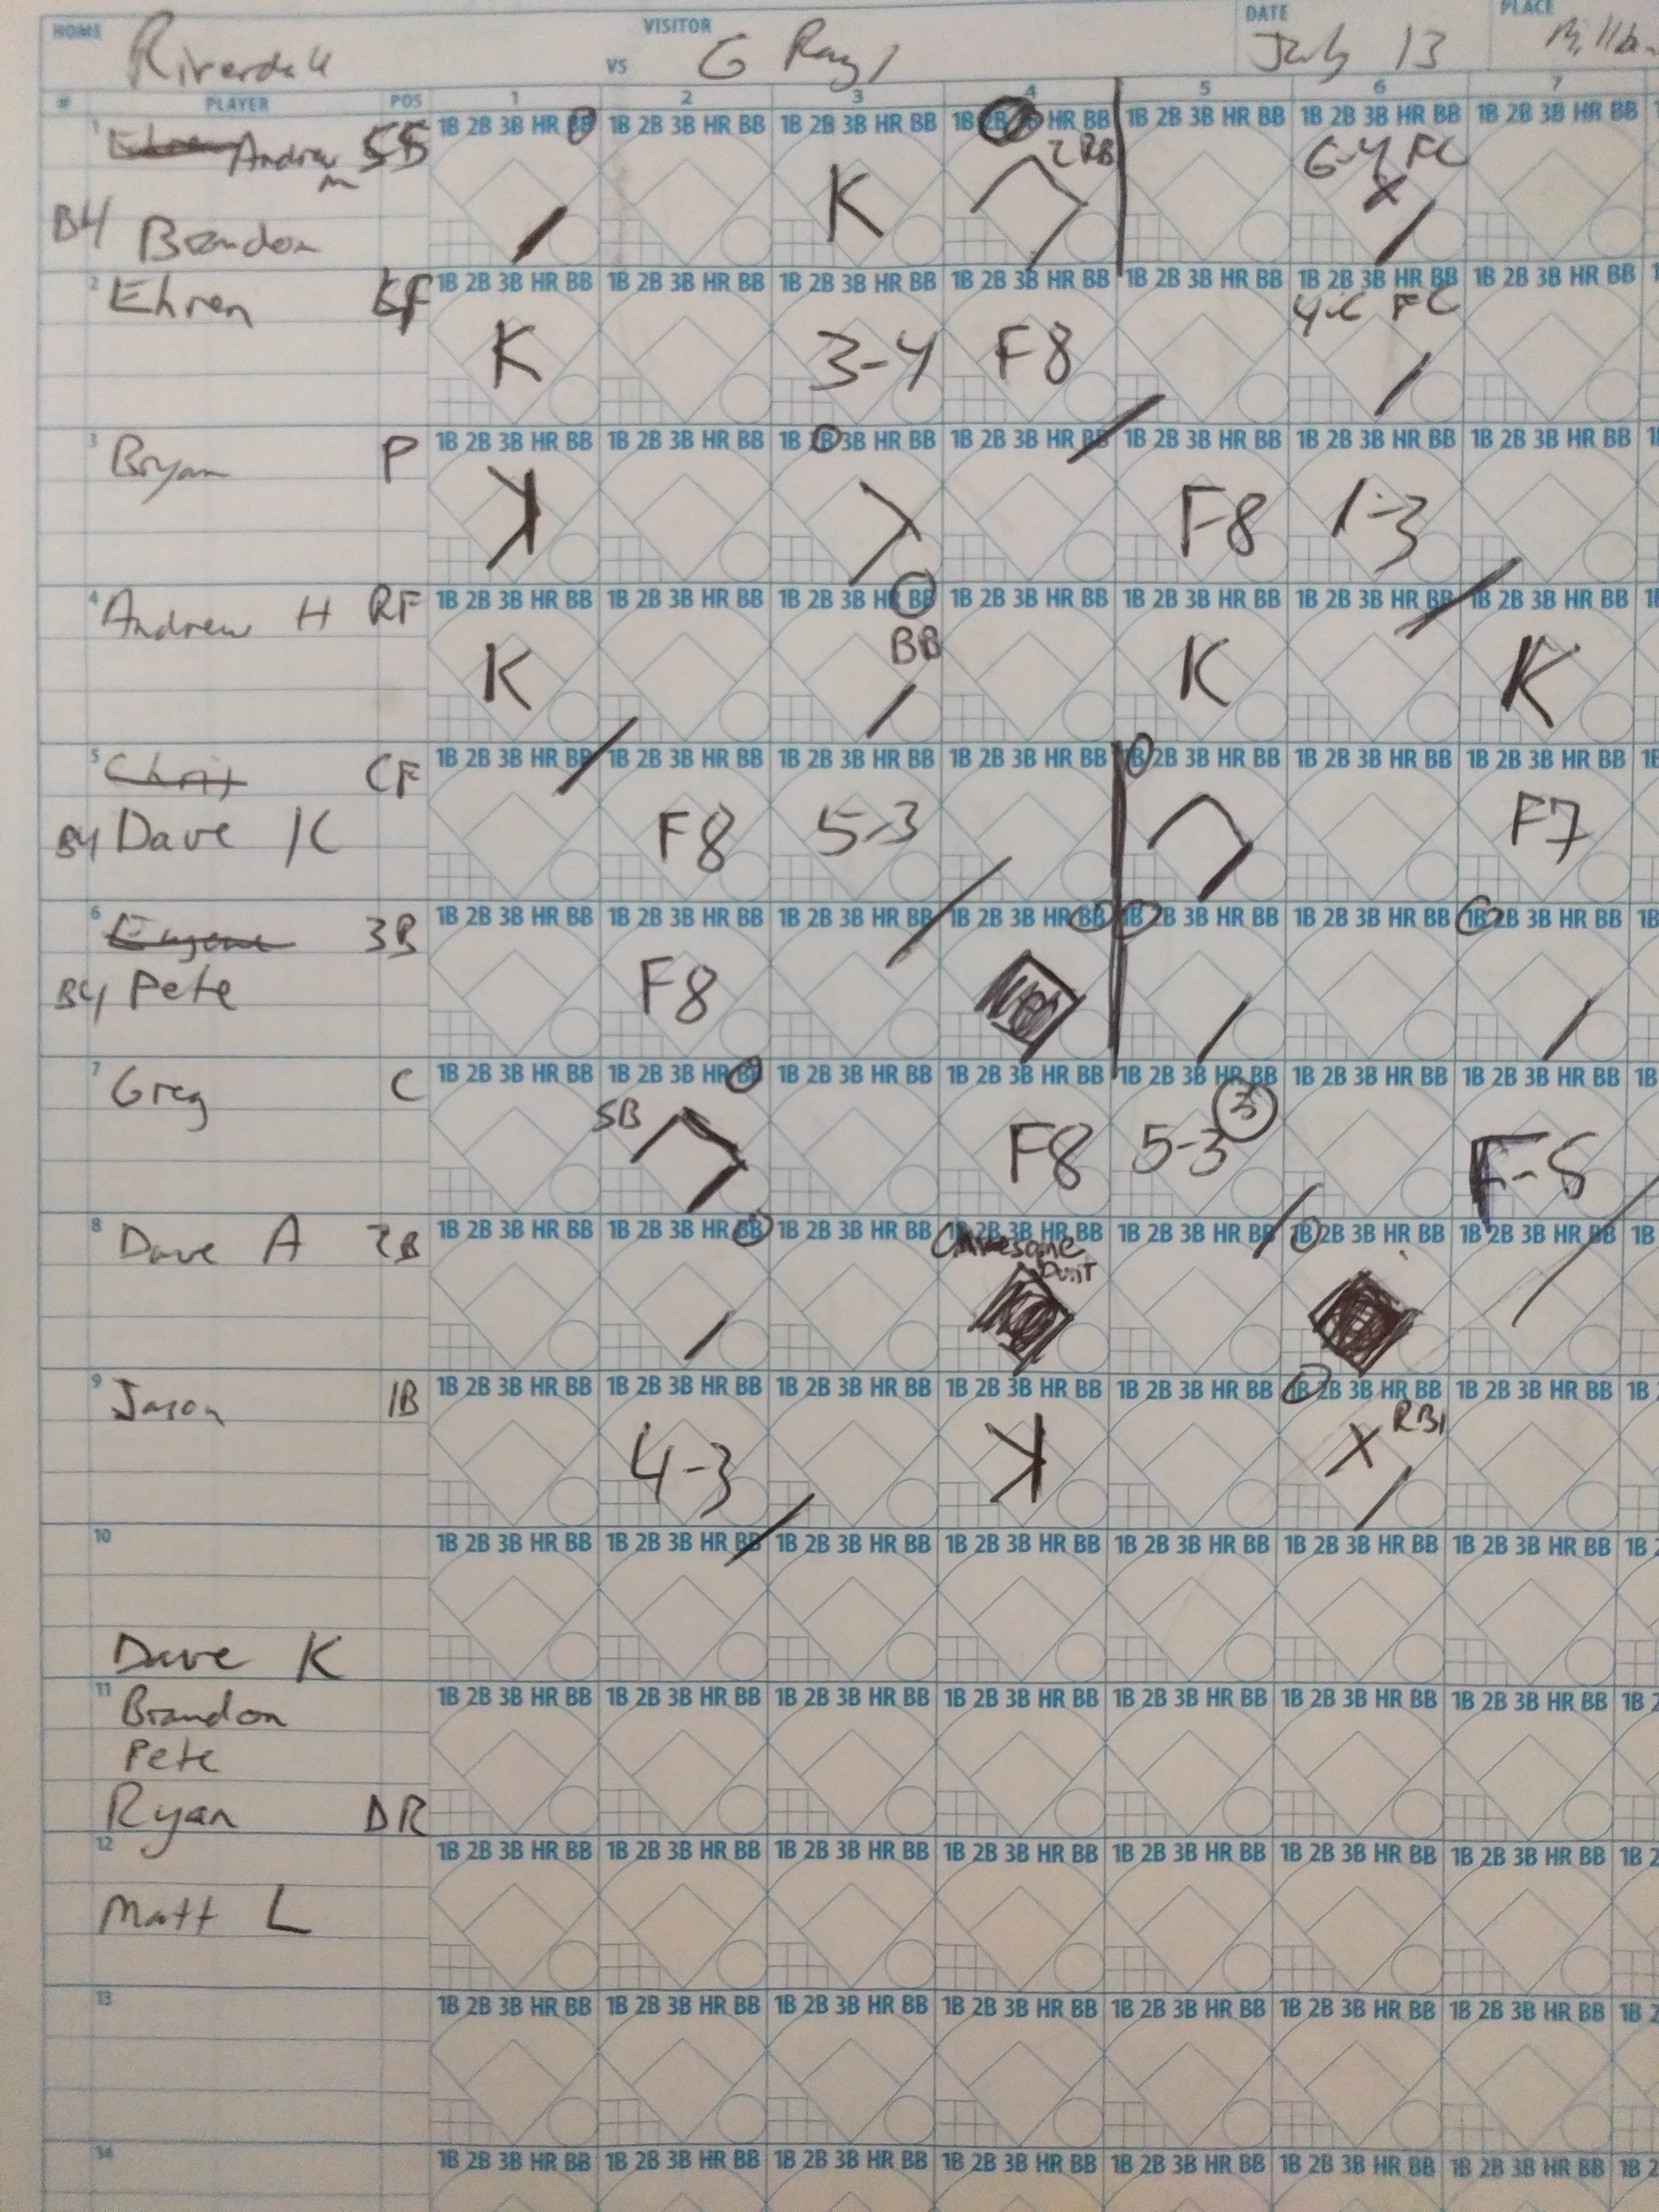 HOME VISITOR DATE PLACE
Riverdale vs G Rays July 13
# PLAYER POS 1 2 3 4 5 6 7
1 1B 2B 3B HR BB 1B 2B 3B HR BB 1B 2B 3B HR BB 1B HR BB 1B 2B 3B HR BB 1B 2B 3B HR BB 1B 2B 3B HR BB
Ehren Andrew m K 2 RBI 6-4 FC X
B4 Brandon
2 1B 2B 3B HR BB 1B 2B 3B HR BB 1B 2B 3B HR BB 1B 2B 3B HR BB 1B 2B 3B HR BB 1B 2B 3B HR BB 1B 2B 3B HR BB
Ehren K 3-4 F8 FC
3 1B 2B 3B HR BB 1B 2B 3B HR BB 1B 2B 3B HR BB 1B 2B 3B HR BB 1B 2B 3B HR BB 1B 2B 3B HR BB 1B 2B 3B HR BB
Bryan P K F-8 1-3
4 1B 2B 3B HR BB 1B 2B 3B HR BB 1B 2B 3B HR BB 1B 2B 3B HR BB 1B 2B 3B HR BB 1B 2B 3B HR BB 1B 2B 3B HR BB
Andrew H RF K BB K K
5 1B 2B 3B HR BB 1B 2B 3B HR BB 1B 2B 3B HR BB 1B 2B 3B HR BB 1B 2B 3B HR BB 1B 2B 3B HR BB 1B 2B 3B HR BB
Chris CF
B4 Dave K F8 5-3 F7
6 1B 2B 3B HR BB 1B 2B 3B HR BB 1B 2B 3B HR BB 1B 2B 3B HR BB 1B 2B 3B HR BB 1B 2B 3B HR BB 1B 2B 3B HR BB
Eugene 3B
B4 Pete F8
7 1B 2B 3B HR BB 1B 2B 3B HR BB 1B 2B 3B HR BB 1B 2B 3B HR BB 1B 2B 3B HR BB 1B 2B 3B HR BB 1B 2B 3B HR BB
Greg C SB F8 5-3 3
8 1B 2B 3B HR BB 1B 2B 3B HR BB 1B 2B 3B HR BB 1B 2B 3B HR BB 1B 2B 3B HR BB 1B 2B 3B HR BB 1B 2B 3B HR BB
Dave A 2B Awesome Bunt
9 1B 2B 3B HR BB 1B 2B 3B HR BB 1B 2B 3B HR BB 1B 2B 3B HR BB 1B 2B 3B HR BB 1B 2B 3B HR BB 1B 2B 3B HR BB
Jason 1B 4-3 K X RBI
10 1B 2B 3B HR BB 1B 2B 3B HR BB 1B 2B 3B HR BB 1B 2B 3B HR BB 1B 2B 3B HR BB 1B 2B 3B HR BB 1B 2B 3B HR BB
Dave K
11 1B 2B 3B HR BB 1B 2B 3B HR BB 1B 2B 3B HR BB 1B 2B 3B HR BB 1B 2B 3B HR BB 1B 2B 3B HR BB 1B 2B 3B HR BB
Brandon
Pete
Ryan DR
12 1B 2B 3B HR BB 1B 2B 3B HR BB 1B 2B 3B HR BB 1B 2B 3B HR BB 1B 2B 3B HR BB 1B 2B 3B HR BB 1B 2B 3B HR BB
Matt L
13 1B 2B 3B HR BB 1B 2B 3B HR BB 1B 2B 3B HR BB 1B 2B 3B HR BB 1B 2B 3B HR BB 1B 2B 3B HR BB 1B 2B 3B HR BB
14 1B 2B 3B HR BB 1B 2B 3B HR BB 1B 2B 3B HR BB 1B 2B 3B HR BB 1B 2B 3B HR BB 1B 2B 3B HR BB 1B 2B 3B HR BB